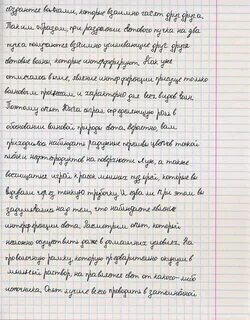 создаются волнами, которые взаимно гасят друг друга.
Таким образом, при разделении светового пучка на два
пучка получаются взаимно усиливающие друг друга
световые волны, которые интерферируют. Как уже
отмечалось выше, явление интерференции присуще только
волновым процессам и характерно для всех видов волн.
Поэтому опыт Юнга сыграл определяющую роль в
обосновании волновой природы света. Вероятно, вам
приходилось наблюдать радужные отливы цветов тонкой
плёнки нефтепродуктов на поверхности лужи, а также
восхищаться игрой красок мыльных пузырей, которые вы
выдували через тонкую трубочку. И едва ли при этом вы
задумывались над тем, что наблюдаете явление
интерференции света. Рассмотрим опыт, который
несложно осуществить даже в домашних условиях. На
проволочную рамку, которую предварительно окунули в
мыльный раствор, направляется свет от какого-либо
источника. Опыт лучше всего проводить в затемнённой